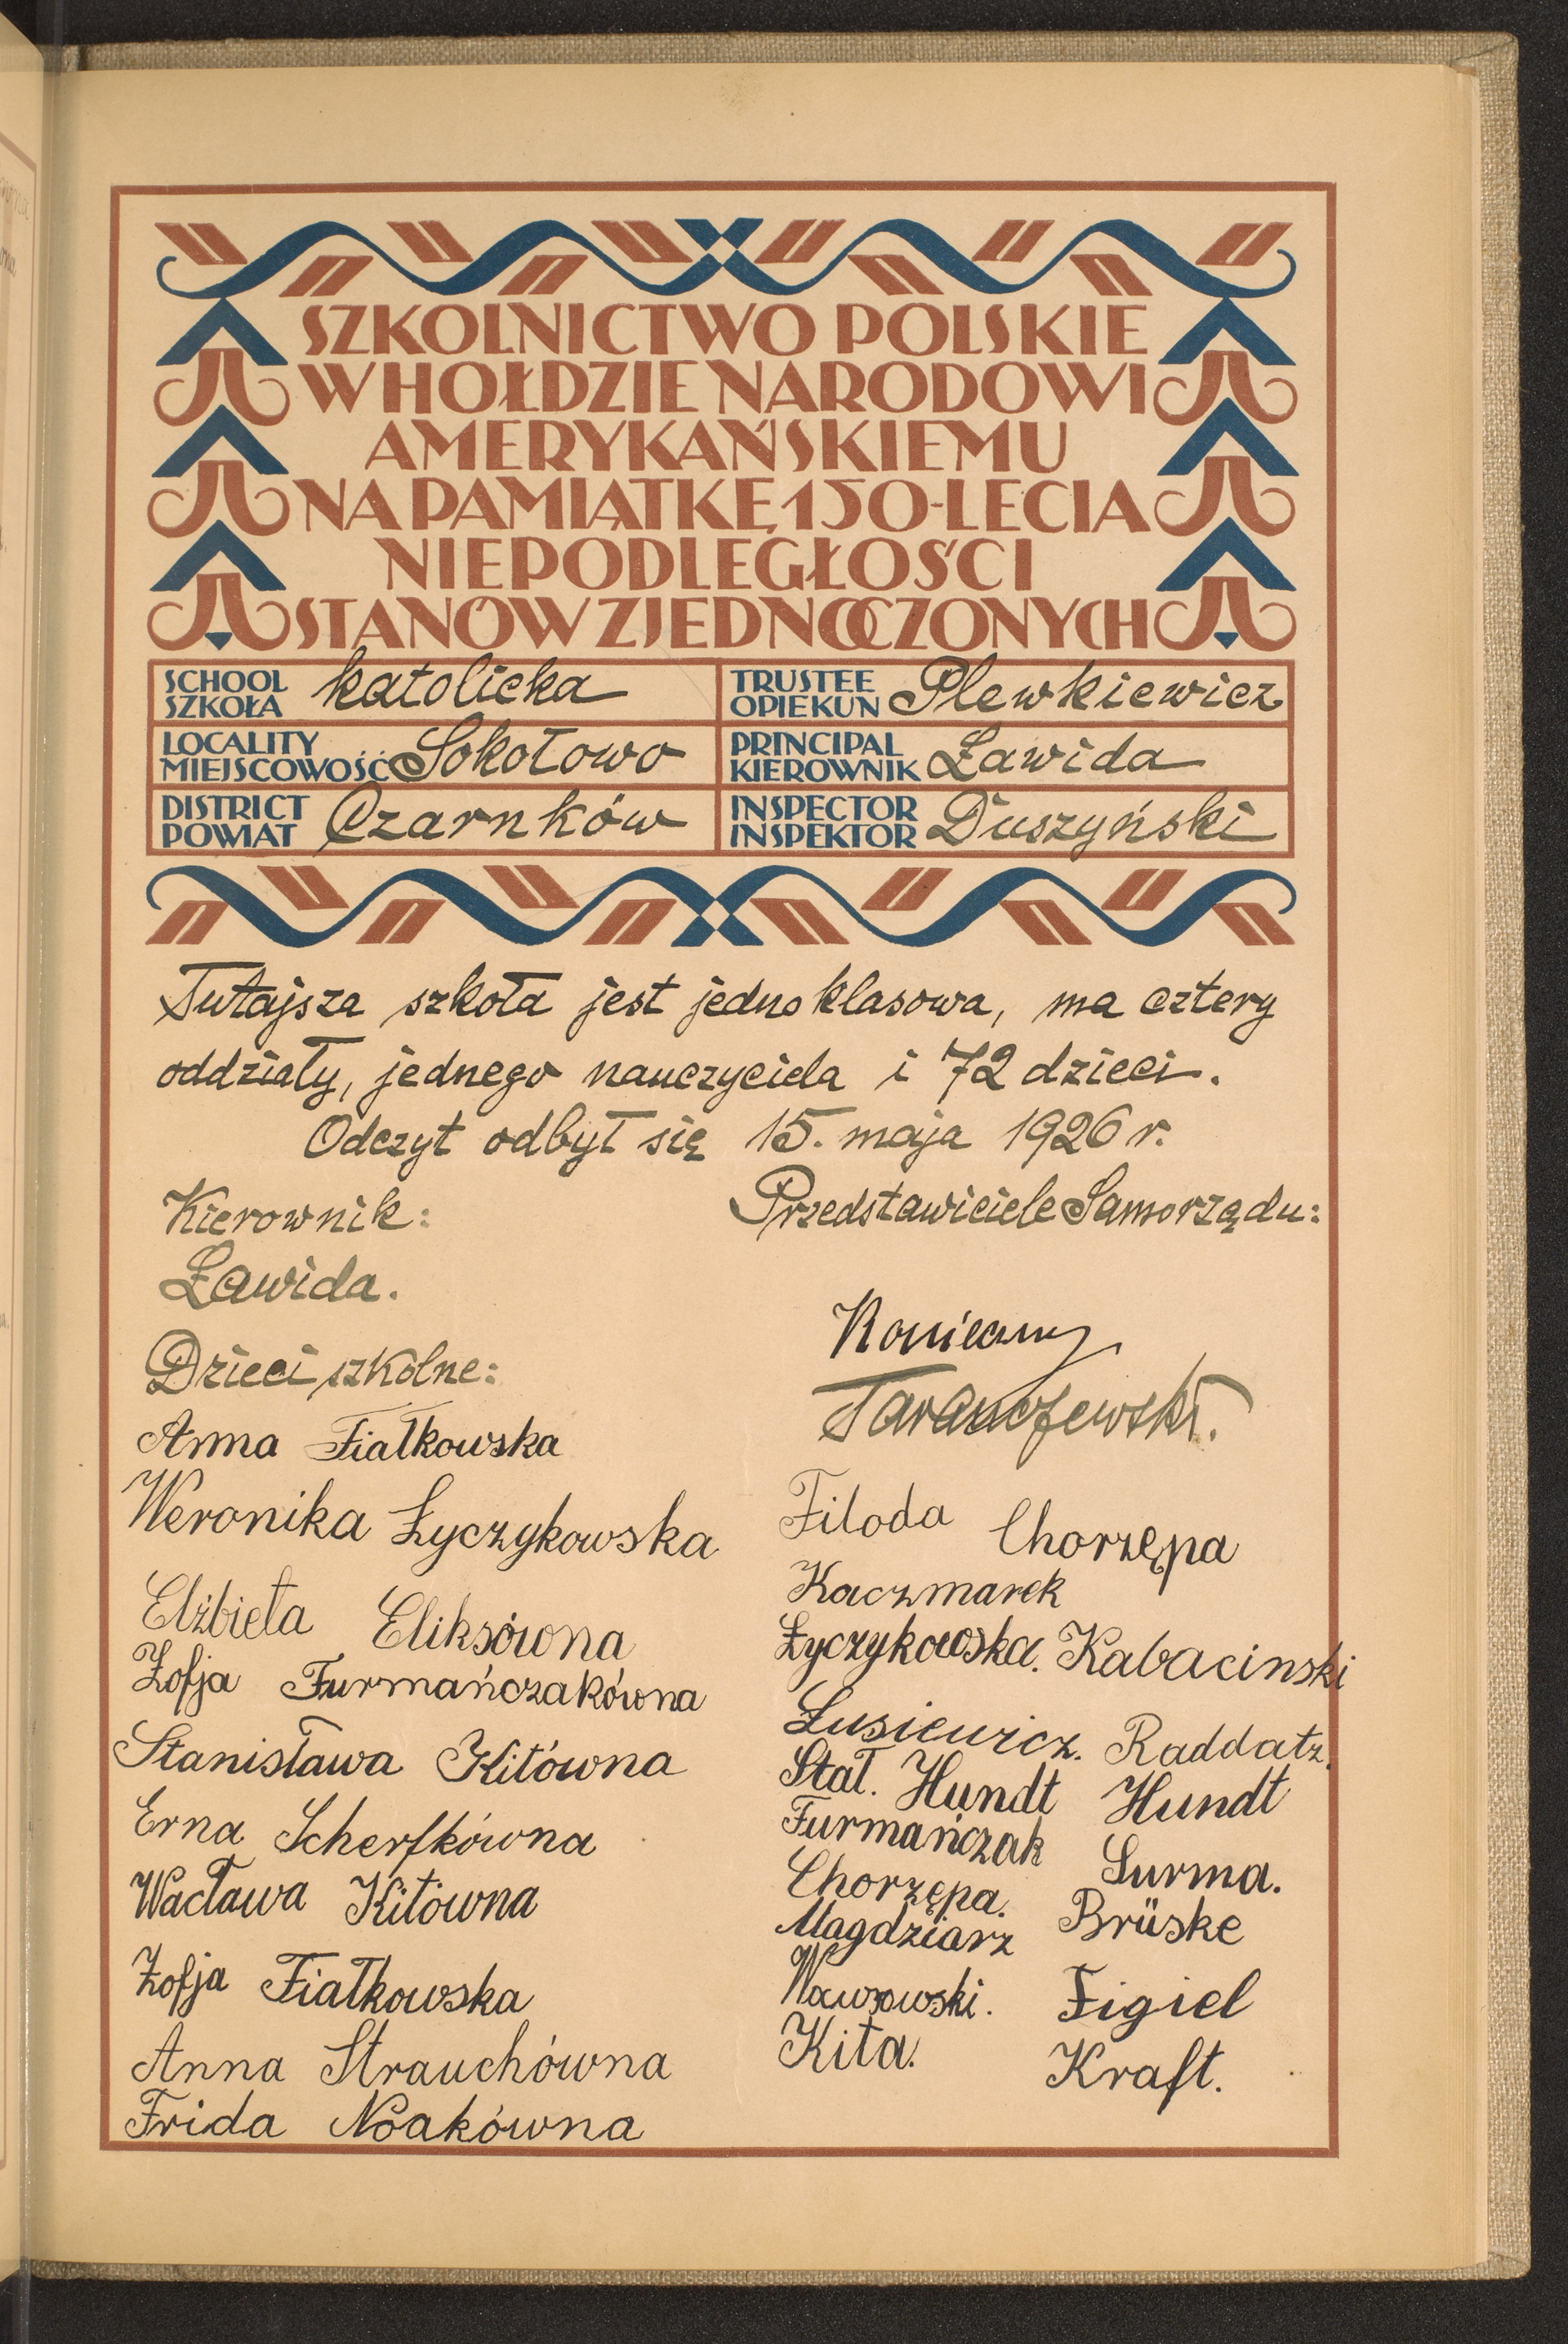 SZKOLNICTWO POLSKIE
W HOŁDZIE NARODOWI
AMERYKAŃSKIEMU
NA PAMIĄTKĘ 150-LECIA
NIEPODLEGŁOŚCI
STANÓW ZJEDNOCZONYCH
SCHOOL
SZKOŁA katolicka
TRUSTEE
OPIEKUN Plewkiewicz
LOCALITY
MIEJSCOWOŚĆ Sokołowo
PRINCIPAL
KIEROWNIK Ławida
DISTRICT
POWIAT Czarnków
INSPECTOR
INSPEKTOR Duszyński
Tutajsza szkoła jest jednoklasowa, ma cztery
oddziały, jednego nauczyciela i 72 dzieci.
Odczyt odbył się 15. maja 1926 r.
Kierownik:
Ławida.
Dzieci szkolne:
Anna Fiałkowska
Weronika Łyczykowska
Elżbieta Eliksówna
Zofja Furmańczakówna
Stanisława Kitówna
Erna Scherfkówna
Wacława Kitówna
Zofja Fiałkowska
Anna Strauchówna
Frida Noakówna
Przedstawiciele Samorządu:
Konieczny
Taranczewski.
Filoda Chorzępa
Kaczmarek
Łyczykowska. Kabacinski
Łusiewicz. Raddatz.
Stat. Hundt Hundt
Furmańczak Surma.
Chorzępa.
Magdziarz Brüske
Wawrowski. Figiel
Kita. Kraft.